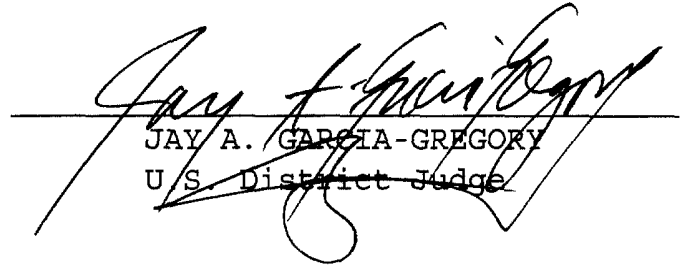 Jay A Garcia-Gregory
JAY A. GARCIA-GREGORY
U.S. District Judge